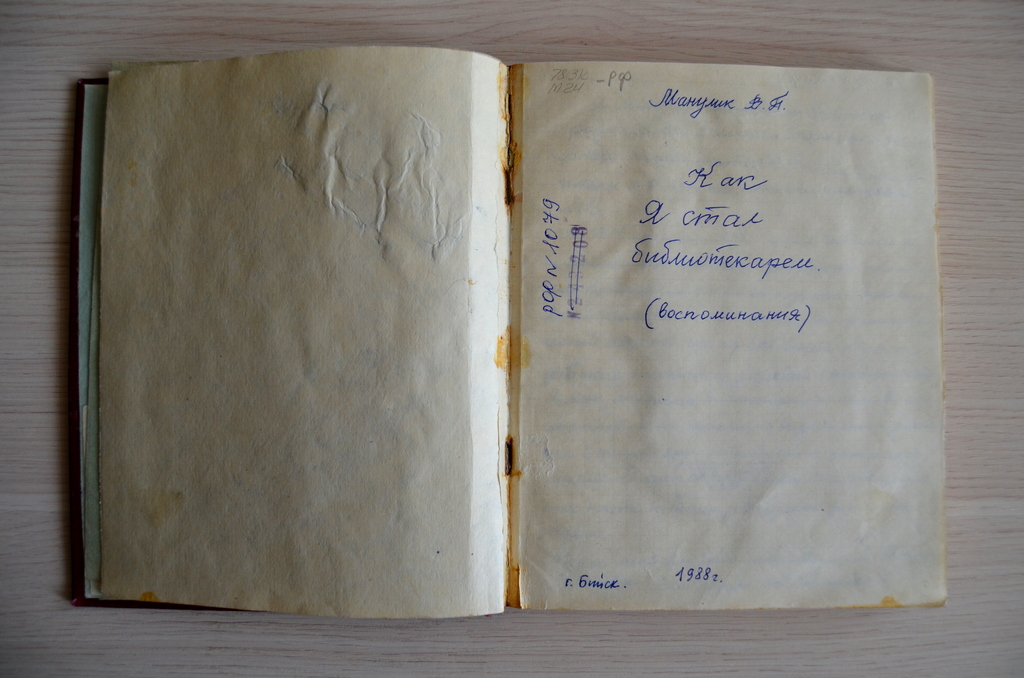 78.3к -рф
М24
Манулик В.П.
Как
Я стал
библиотекарем.
(воспоминания)
г. Бийск. 1988г.